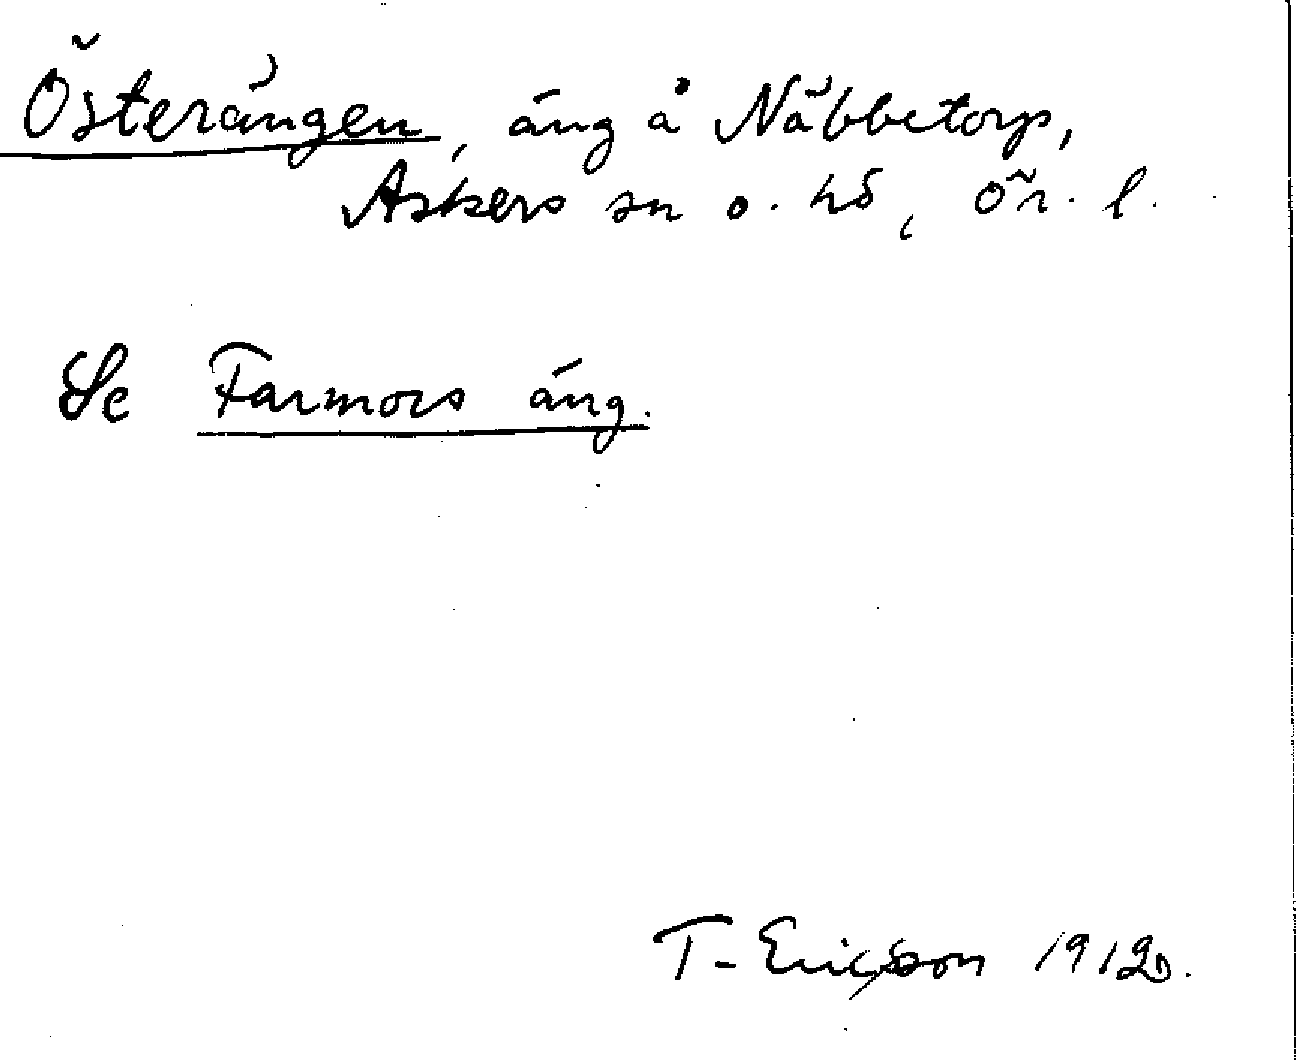 Österängen, äng å Näbbetorp,
Askers sn o. hd, Ör. l.
Se Farmors äng.
T. Ericsson 1912.